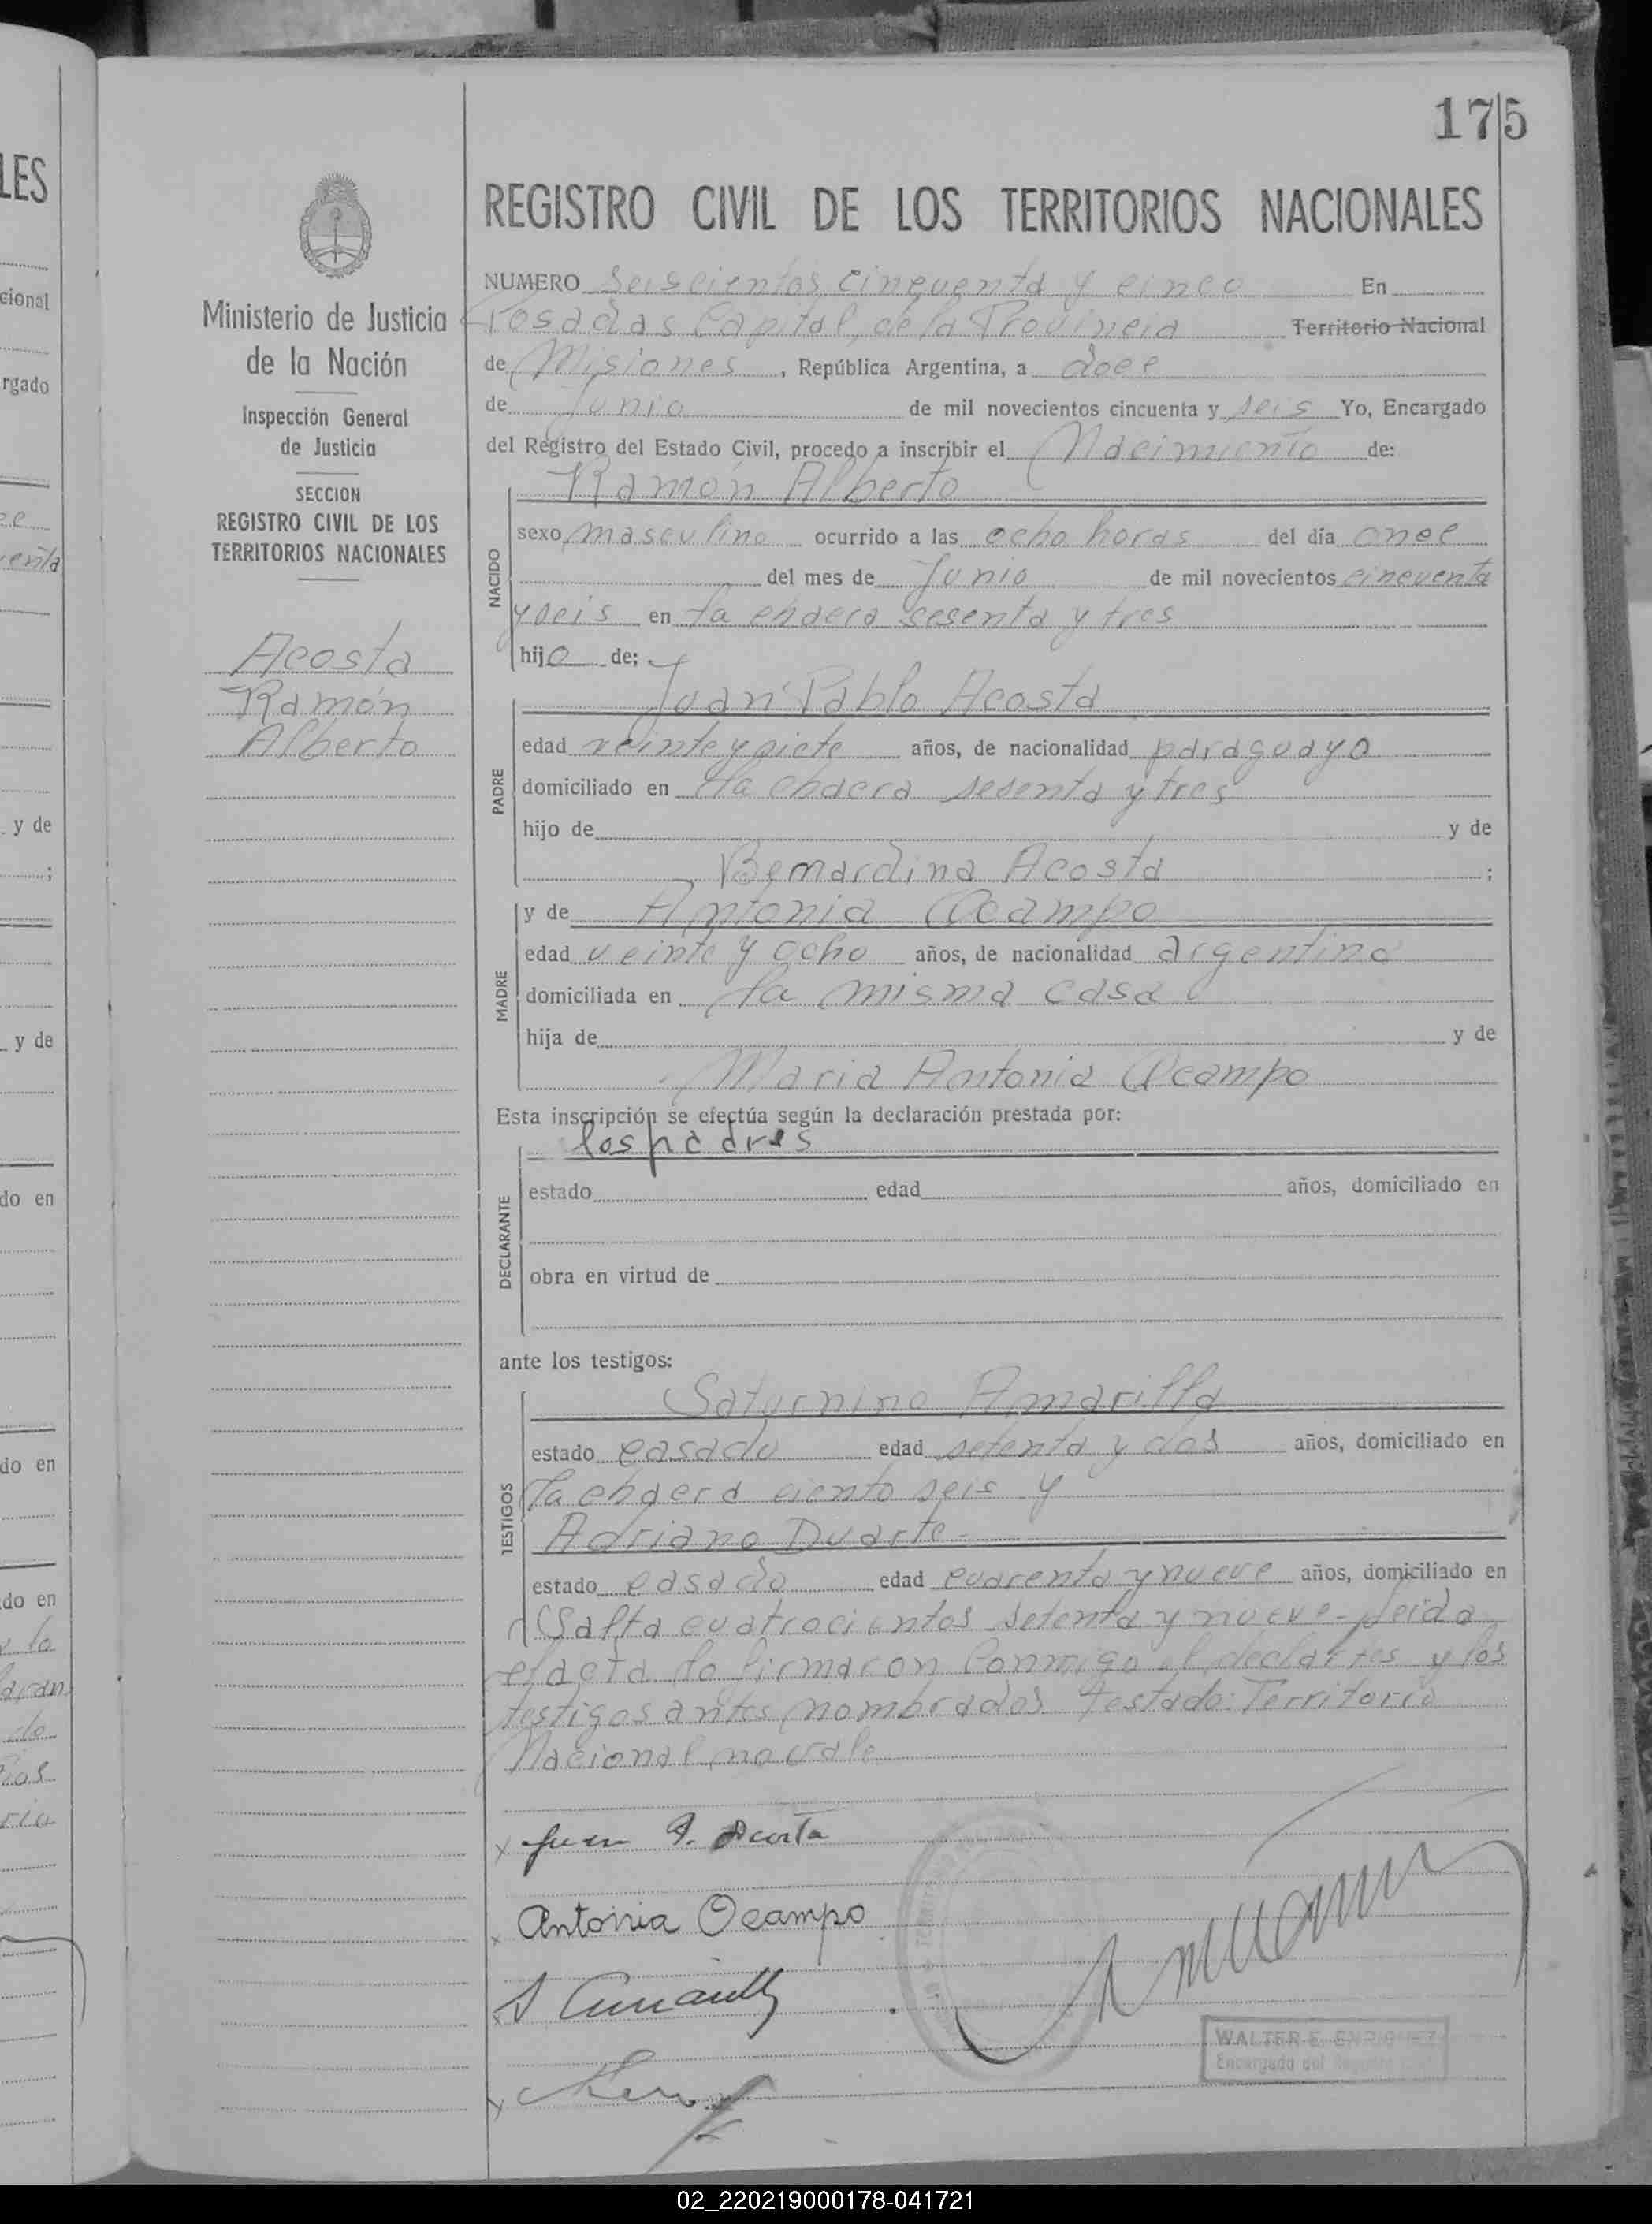 175
LES
REGISTRO CIVIL DE LOS TERRITORIOS NACIONALES
Ministerio de Justicia
de la Nación
Inspección General
de Justicia
SECCION
REGISTRO CIVIL DE LOS
TERRITORIOS NACIONALES
Acosta
Ramón
Alberto
NUMERO Seiscientos cincuenta y cinco En
Posadas Capital, de la Provincia Territorio Nacional
de Misiones, República Argentina, a doce
de Junio de mil novecientos cincuenta y seis Yo, Encargado
del Registro del Estado Civil, procedo a inscribir el Nacimiento de:
Ramón Alberto
NACIDO
sexo masculino ocurrido a las ocho horas del día once
del mes de Junio de mil novecientos cincuenta
y seis en la chacra sesenta y tres
hijo de:
Juan Pablo Acosta
PADRE
edad veinte y siete años, de nacionalidad paraguayo
domiciliado en la chacra sesenta y tres
hijo de y de
Bernardina Acosta ;
y de Antonia Ocampo
MADRE
edad veinte y ocho años, de nacionalidad argentina
domiciliada en la misma casa
hija de y de
Maria Antonia Ocampo
Esta inscripción se efectúa según la declaración prestada por:
los padres
DECLARANTE
estado edad años, domiciliado en
obra en virtud de
ante los testigos:
Saturnino Amarilla
TESTIGOS
estado casado edad setenta y dos años, domiciliado en
la chacra ciento seis y
Adriano Duarte
estado casado edad cuarenta y nueve años, domiciliado en
Salta cuatrocientos setenta y nueve- Leida
el acta la firmaron conmigo el declartes y los
testigos antes nombrados Testado: Territorio
Nacional no vale
x Juan P. Acosta
x Antonia Ocampo
WALTER E. ENRIQUEZ
Encargado del Registro
02_220219000178-041721